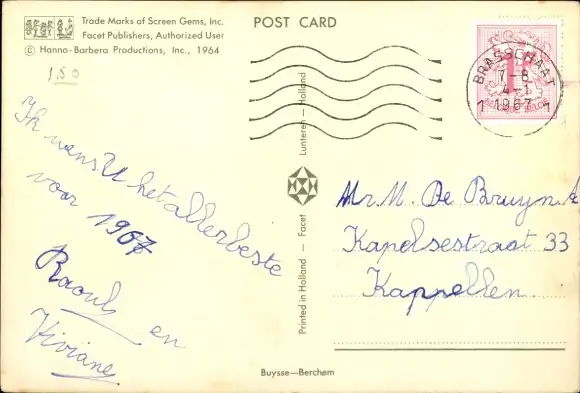 Trade Marks of Screen Gems, Inc.
Facet Publishers, Authorized User
© Hanna-Barbera Productions, Inc., 1964
POST CARD
1,50
BRASSCHAAT
7-8
4-1
1 1967 1
Ik wens U het allerbeste
voor 1967
Raoul en
Viviane
Printed in Holland — Facet
Lunteren — Holland
Mr. M. De Bruyn
Kapelsestraat 33
Kappellen
Buysse—Berchem